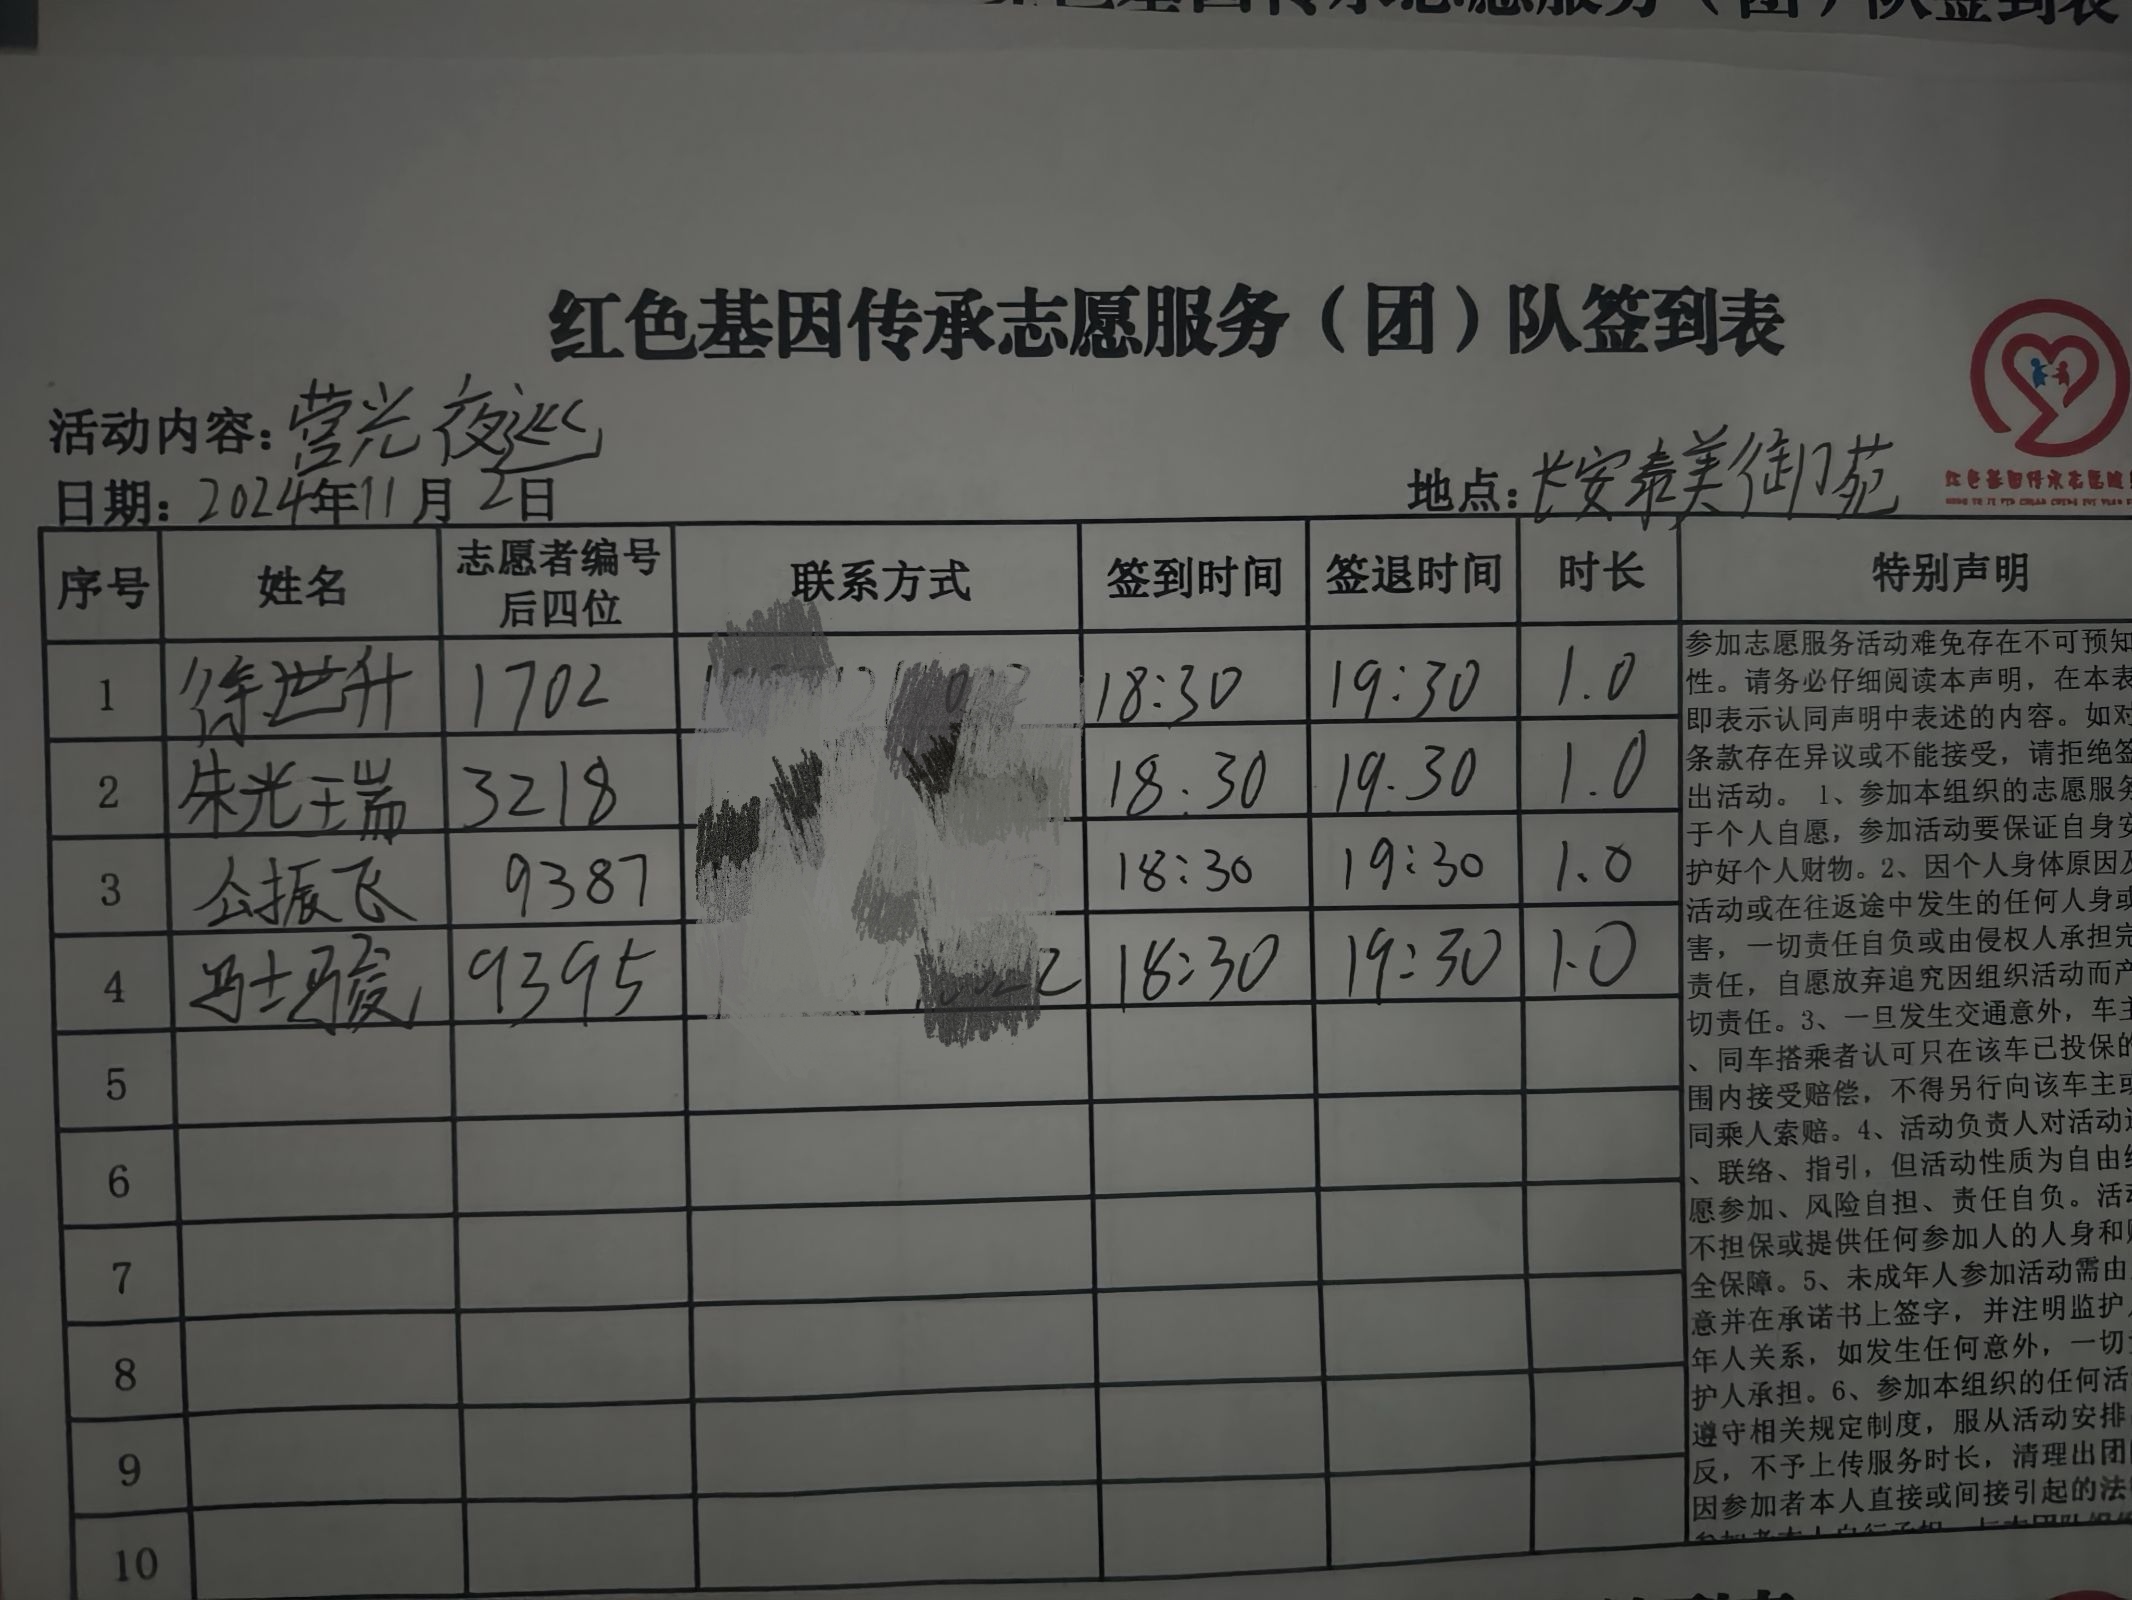 红色基因传承志愿服务（团）队签到表
活动内容：营光夜巡
日期：2024年11月2日
地点：长安泰美御门苑
序号 姓名 志愿者编号后四位 联系方式 签到时间 签退时间 时长 特别声明
1 徐世升 1702 18:30 19:30 1.0
2 朱光瑞 3218 18:30 19:30 1.0
3 公振飞 9387 18:30 19:30 1.0
4 冯士骏 9395 18:30 19:30 1.0
5
6
7
8
9
10
参加志愿服务活动难免存在不可预知
性。请务必仔细阅读本声明，在本表
即表示认同声明中表述的内容。如对
条款存在异议或不能接受，请拒绝签
出活动。 1、参加本组织的志愿服务
于个人自愿，参加活动要保证自身安
护好个人财物。2、因个人身体原因及
活动或在往返途中发生的任何人身或
害，一切责任自负或由侵权人承担完
责任，自愿放弃追究因组织活动而产
切责任。3、一旦发生交通意外，车主
、同车搭乘者认可只在该车已投保的
围内接受赔偿，不得另行向该车主或
同乘人索赔。4、活动负责人对活动进
、联络、指引，但活动性质为自由组
愿参加、风险自担、责任自负。活动
不担保或提供任何参加人的人身和财
全保障。5、未成年人参加活动需由
意并在承诺书上签字，并注明监护人
年人关系，如发生任何意外，一切
护人承担。6、参加本组织的任何活
遵守相关规定制度，服从活动安排
反，不予上传服务时长，清理出团
因参加者本人直接或间接引起的法